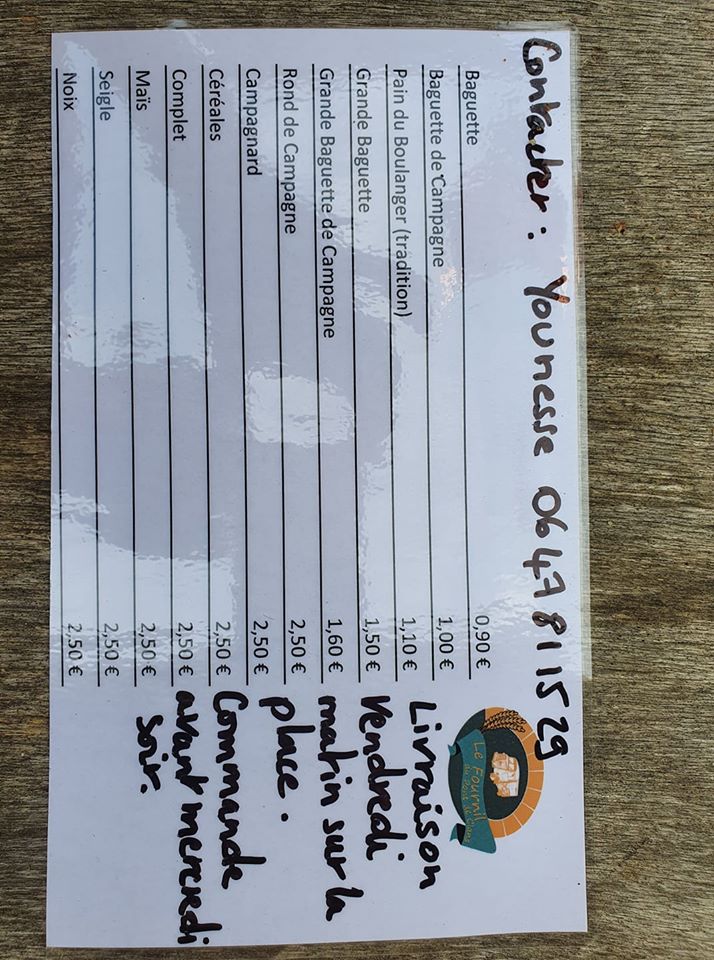 Contacter : Younesse 06 47 81 15 29
Baguette 0,90 €
Baguette de Campagne 1,00 €
Pain du Boulanger (tradition) 1,10 €
Grande Baguette 1,50 €
Grande Baguette de Campagne 1,60 €
Rond de Campagne 2,50 €
Campagnard 2,50 €
Céréales 2,50 €
Complet 2,50 €
Maïs 2,50 €
Seigle 2,50 €
Noix 2,50 €
Le Fournil
du Pont de
Livraison
Vendredi
matin sur la
place.
Commande
avant mercredi
soir.